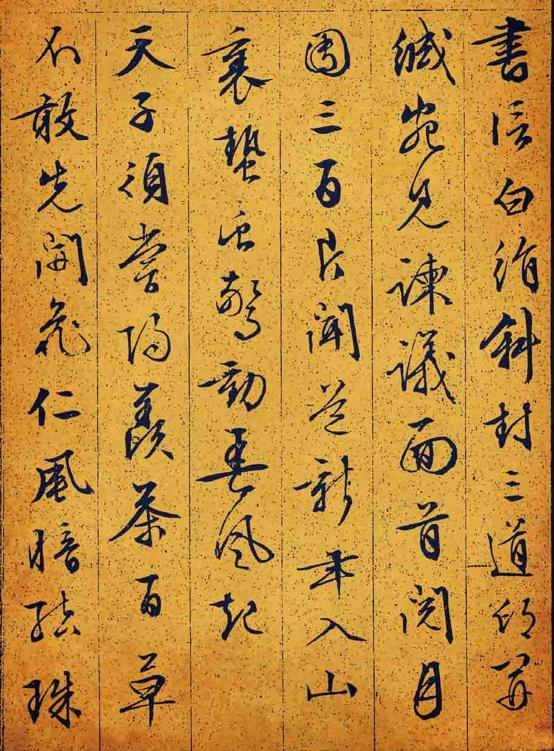 書信白絹斜封三道印開
緘宛見諫議面首閱月
團三百片聞道新年入山
裏蟄虫驚動春風起
天子須嘗陽羨茶百草
不敢先開花仁風暗結珠